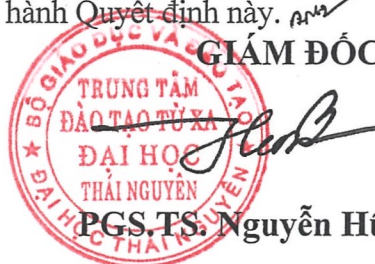 hành Quyết định này.
GIÁM ĐỐC
BỘ GIÁO DỤC VÀ ĐÀO TẠO
TRUNG TÂM
ĐÀO TẠO TỪ XA
ĐẠI HỌC
THÁI NGUYÊN
★ ĐẠI HỌC THÁI NGUYÊN ★
PGS.TS. Nguyễn